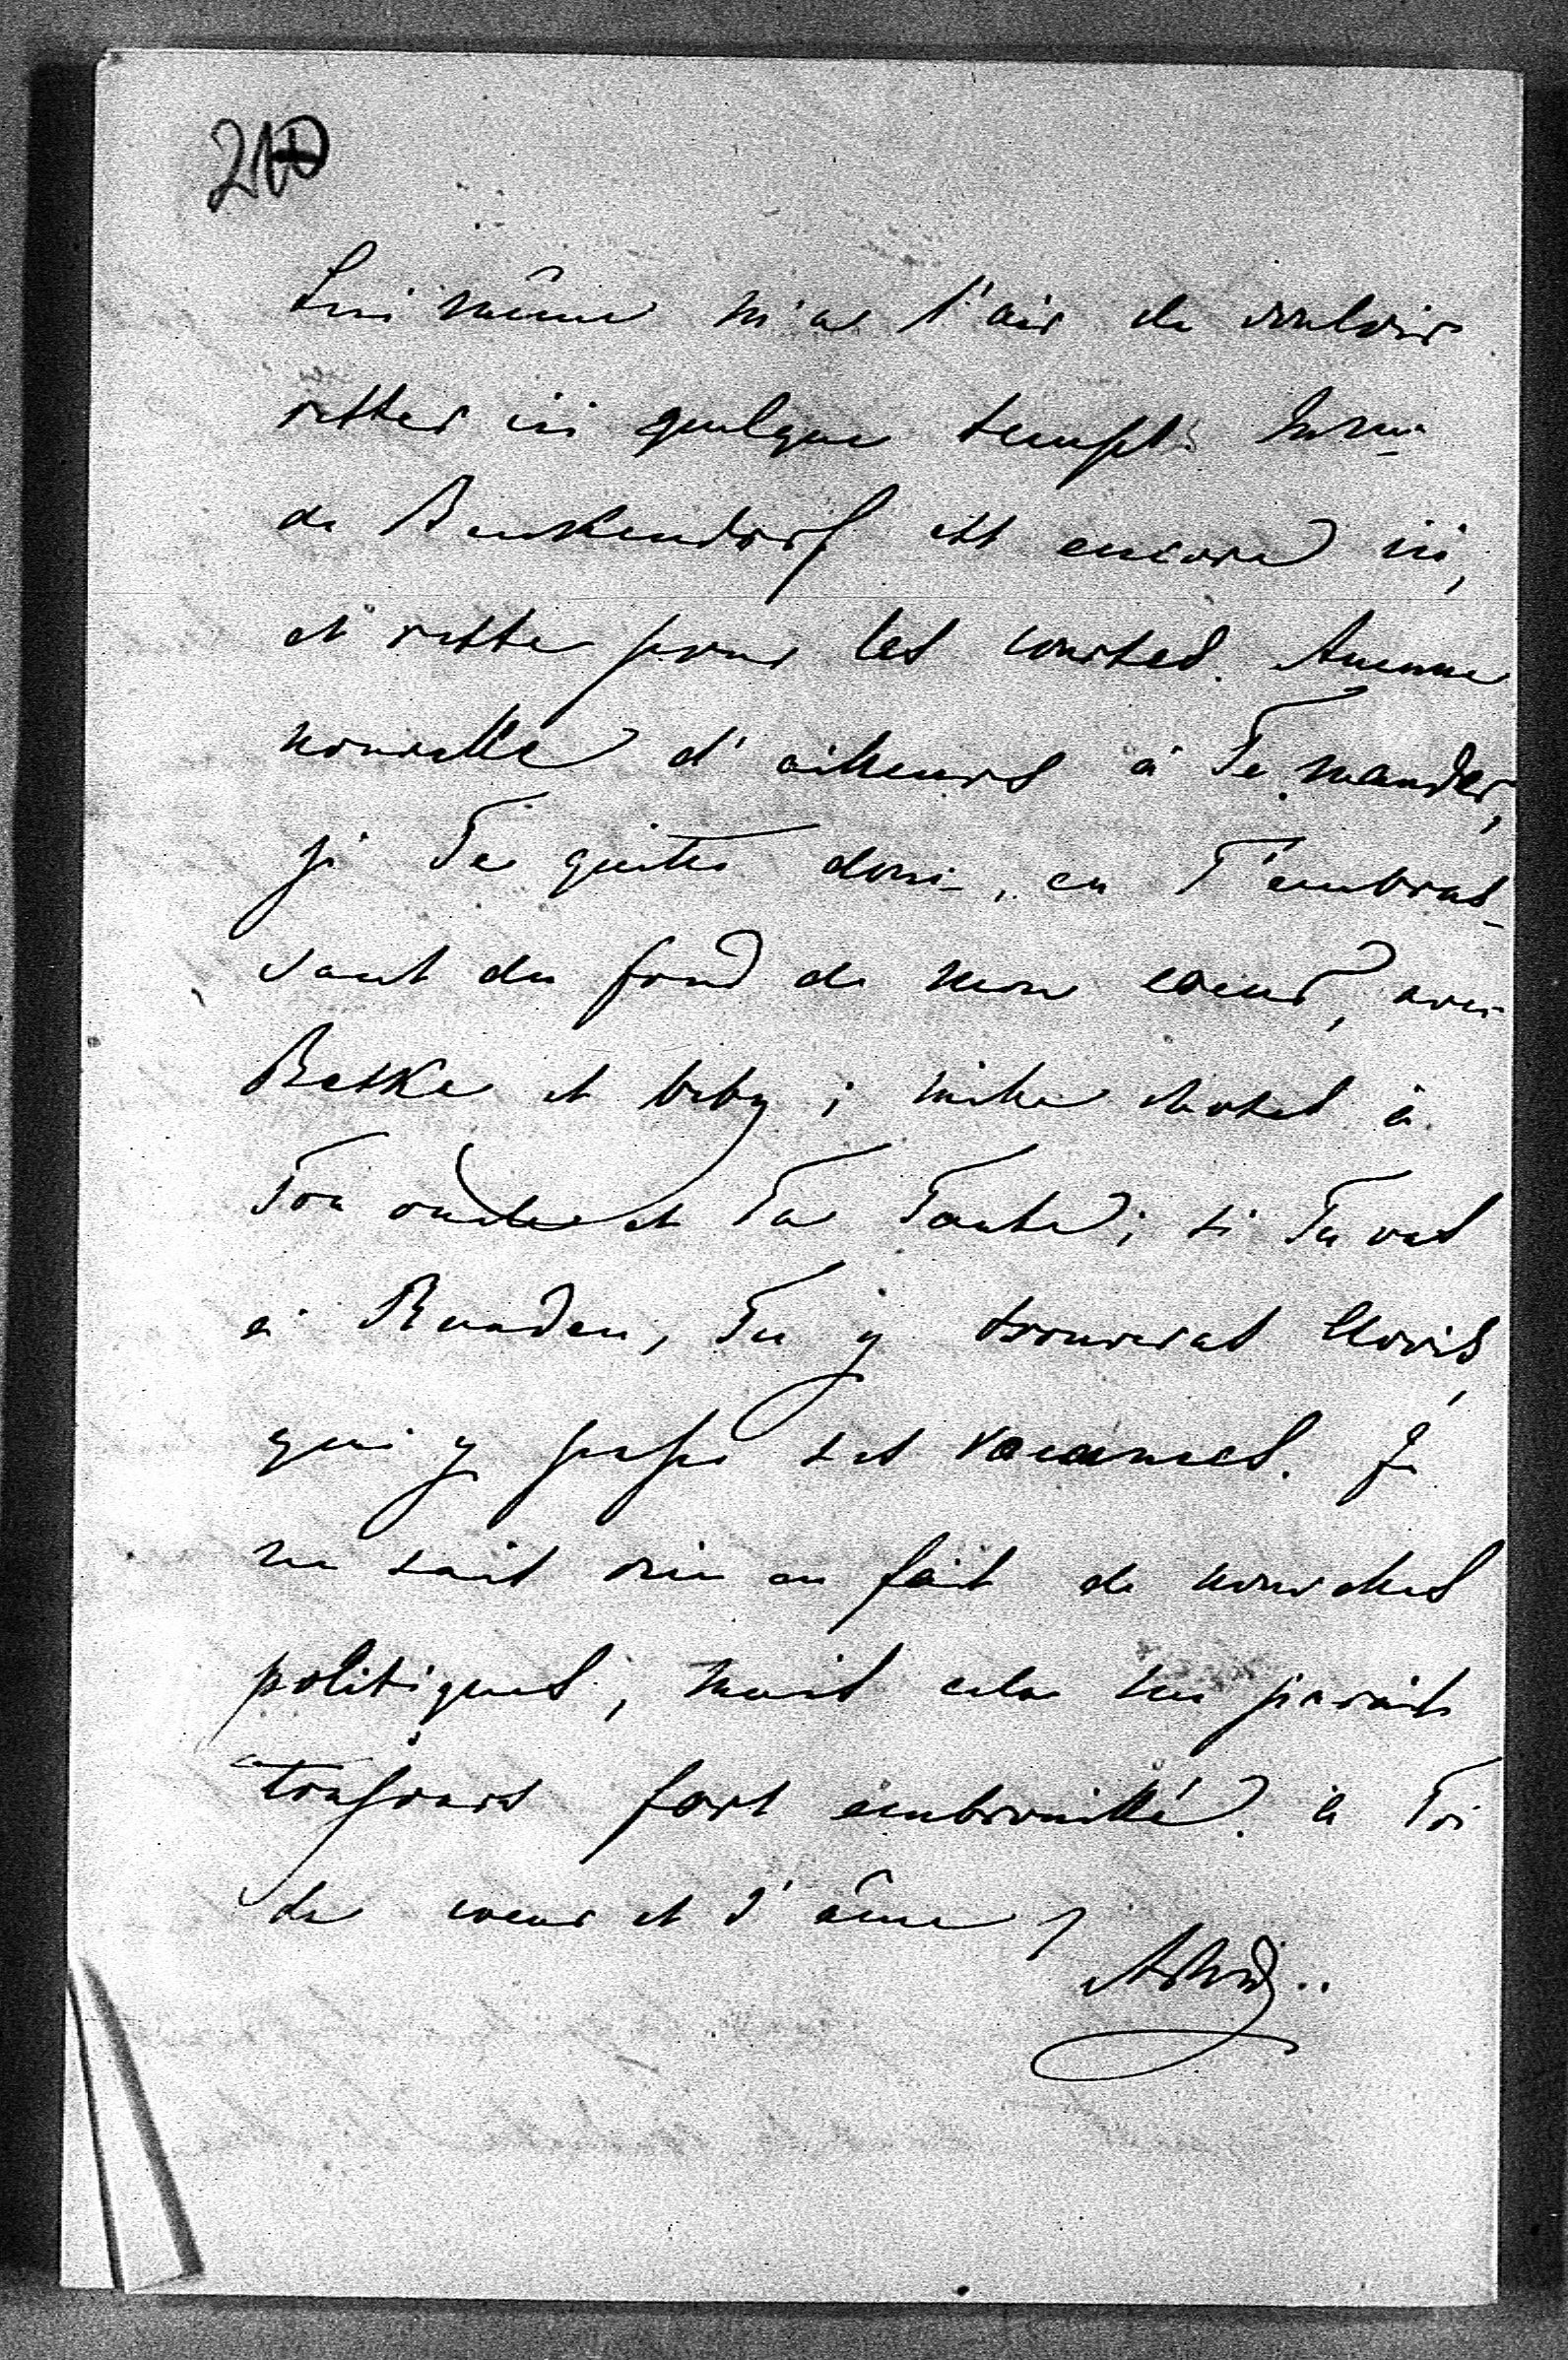 210
Lui même m'a l'air de vouloir
rester ici quelque temps. Mme
de Benkendorf est encore ici,
et reste pour les courses. Aucune
nouvelle d'ailleurs à Te mander,
je Te quitte donc, en T'embras-
sant du fond de mon coeur, avec
Betke et beby; mille choses à
Ton oncle et Ta Tante; si Tu vas
à Baaden, Tu y trouveras
qui y passe ses vacances. Je
ne sais rien en fait de nouvelles
politiques, mais cela me parait
toujours fort embrouillé. à Toi
de coeur et d'âme